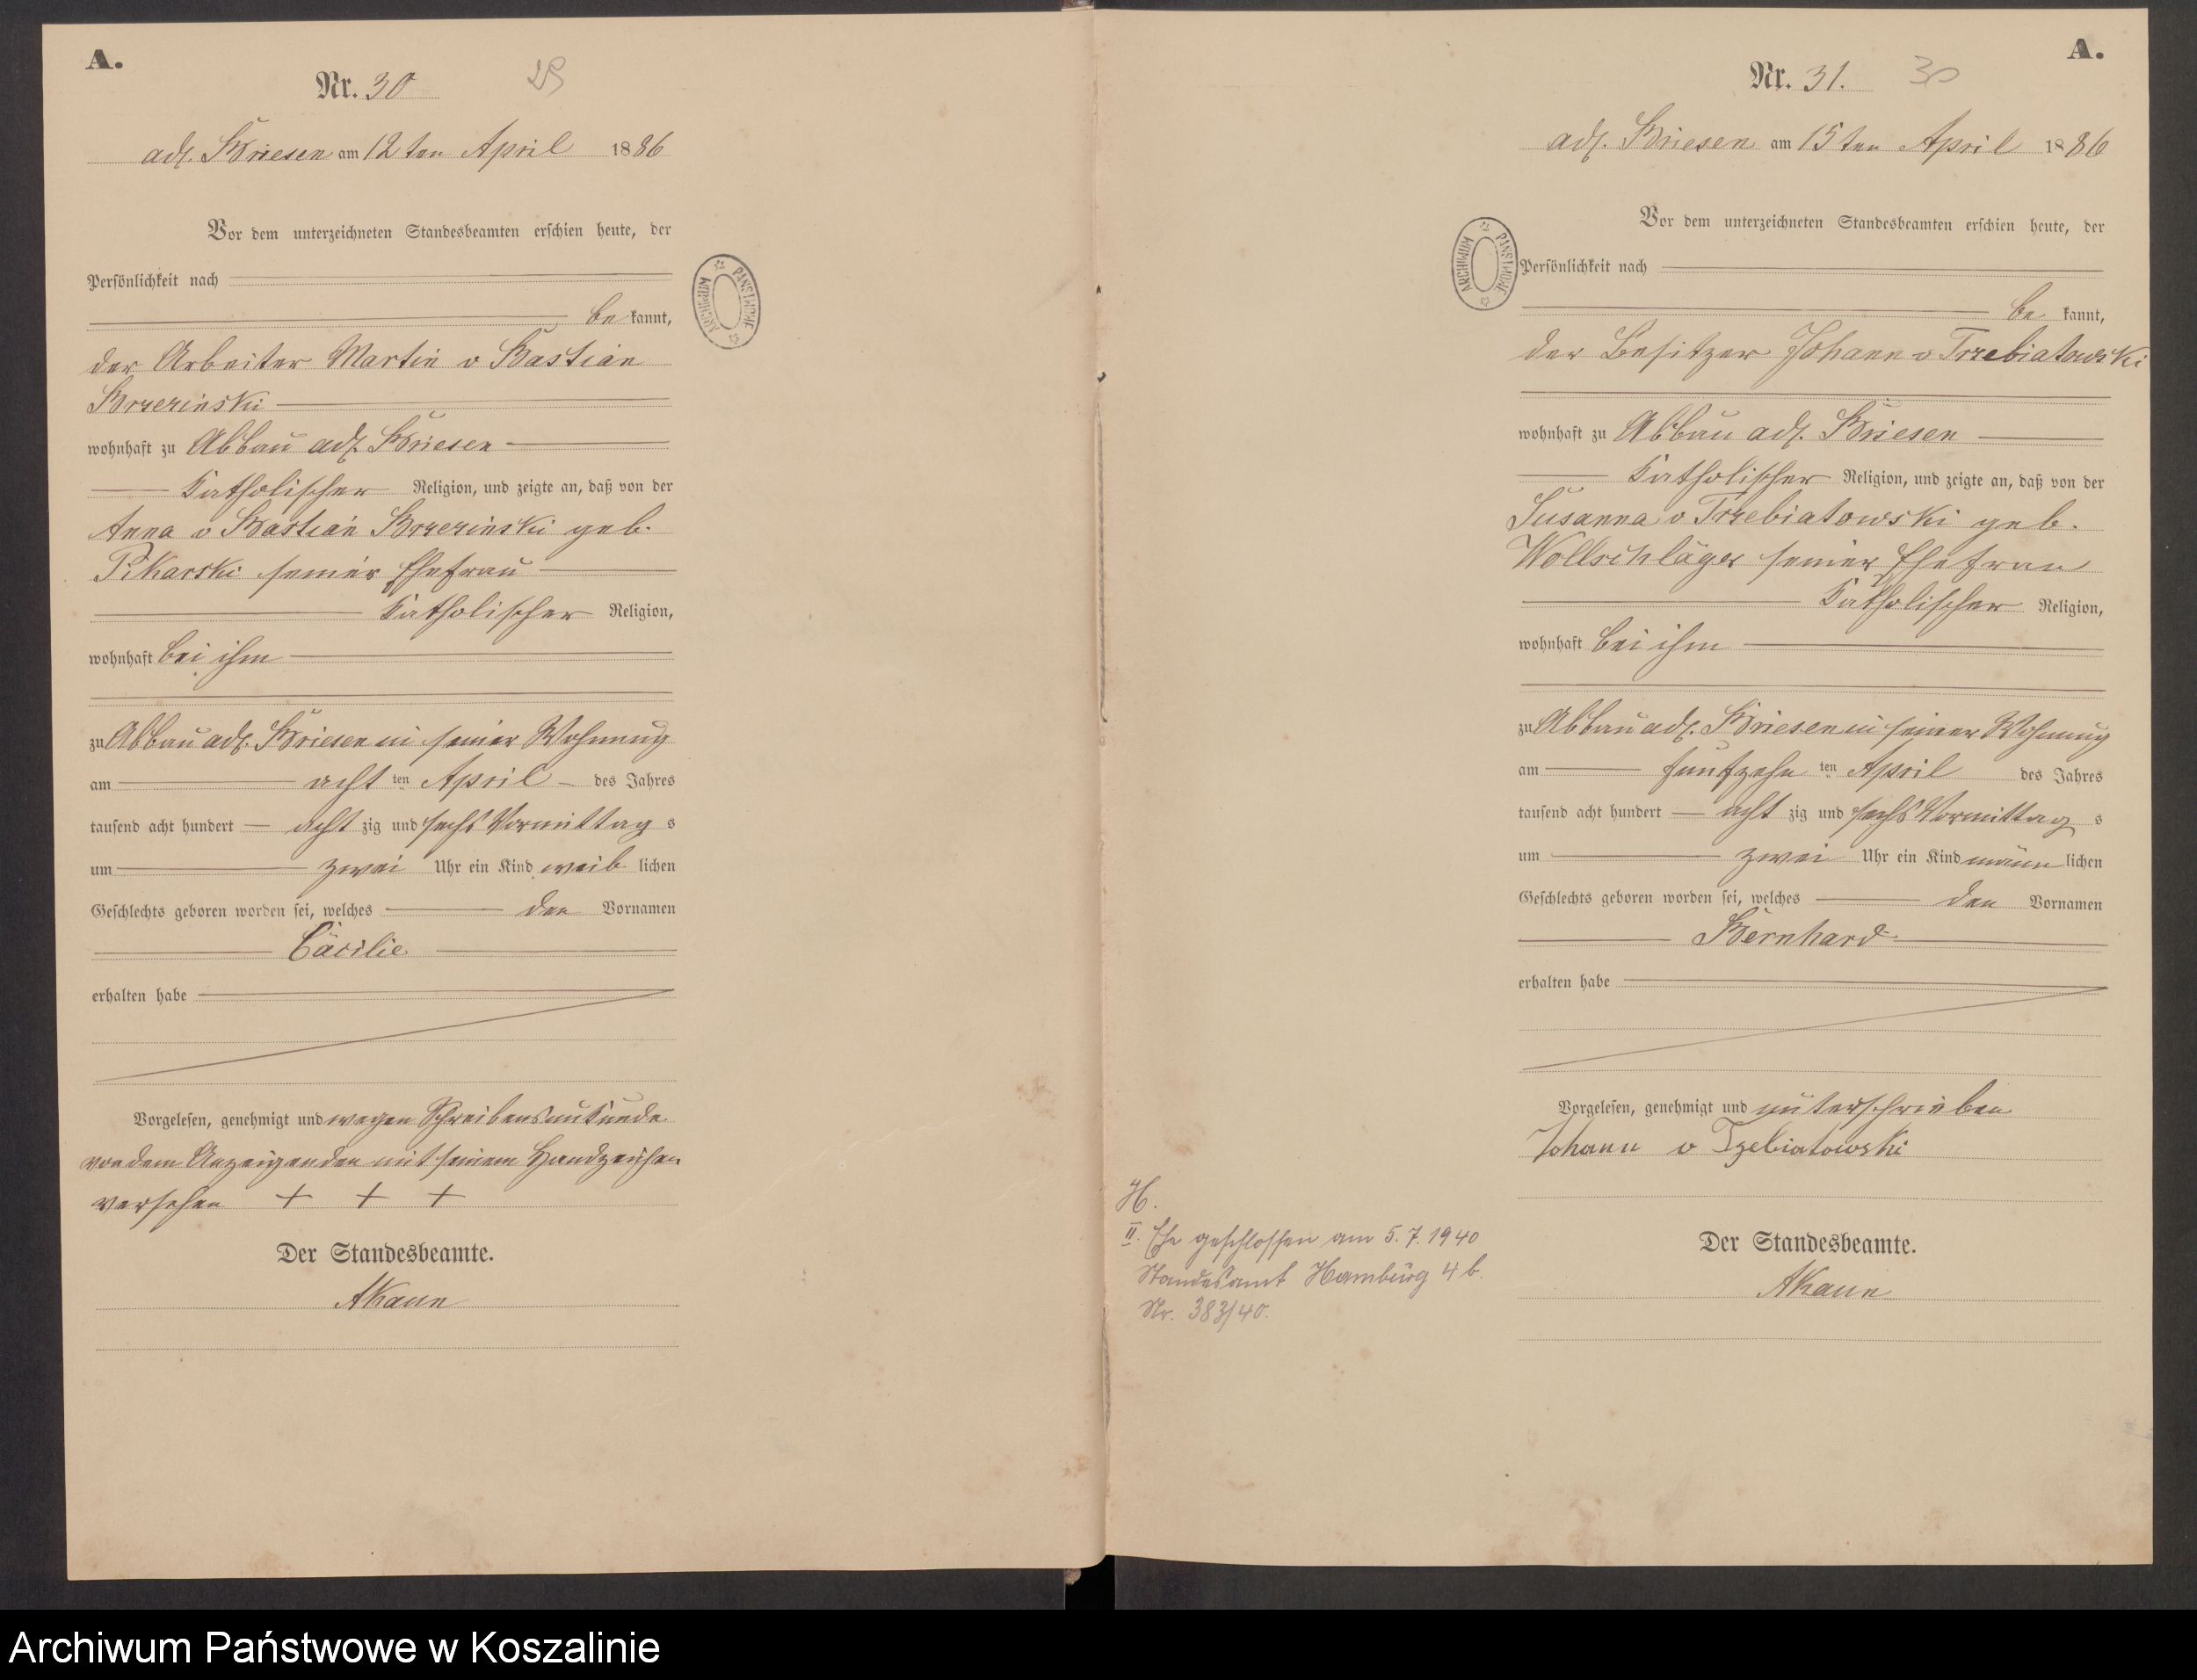 A.
Nr. 30
29
adl. Briesen am 12 ten April 1886
Vor dem unterzeichneten Standesbeamten erschien heute, der
Persönlichkeit nach
be kannt,
der Arbeiter Martin v Bastian
Brzezinski
wohnhaft zu Abbau adl. Briesen
Katholischer Religion, und zeigte an, daß von der
Anna v Bastian Brzezinski geb.
Pikarski seiner Ehefrau
Katholischer Religion,
wohnhaft bei ihm
zu Abbau adl. Briesen in seiner Wohnung
am acht ten April des Jahres
tausend acht hundert acht zig und sechs Vormittag s
um zwei Uhr ein Kind weib lichen
Geschlechts geboren worden sei, welches den Vornamen
Cäcilie
erhalten habe
Vorgelesen, genehmigt und wegen Schreibensunkunde
von dem Anzeigenden mit seinem Handzeichen
versehen + + +
Der Standesbeamte.
AKaun
ARCHIWUM PAŃSTWOWE
A.
Nr. 31.
30
adl. Briesen am 15 ten April 1886
Vor dem unterzeichneten Standesbeamten erschien heute, der
Persönlichkeit nach
be kannt,
der Besitzer Johann v Trzebiatowski
wohnhaft zu Abbau adl. Briesen
Katholischer Religion, und zeigte an, daß von der
Susanna v Trzebiatowski geb.
Wollschläger seiner Ehefrau
Katholischer Religion,
wohnhaft bei ihm
zu Abbau adl. Briesen in seiner Wohnung
am funfzehn ten April des Jahres
tausend acht hundert acht zig und sechs Vormittag s
um zwei Uhr ein Kind männ lichen
Geschlechts geboren worden sei, welches den Vornamen
Bernhard
erhalten habe
Vorgelesen, genehmigt und unterschrieben
Johann v Tzebiatowski
Der Standesbeamte.
AKaun
ARCHIWUM PAŃSTWOWE
H.
II. Ehe geschlossen am 5.7.1940
Standesamt Hamburg 4 b.
Nr. 383/40.
Archiwum Państwowe w Koszalinie